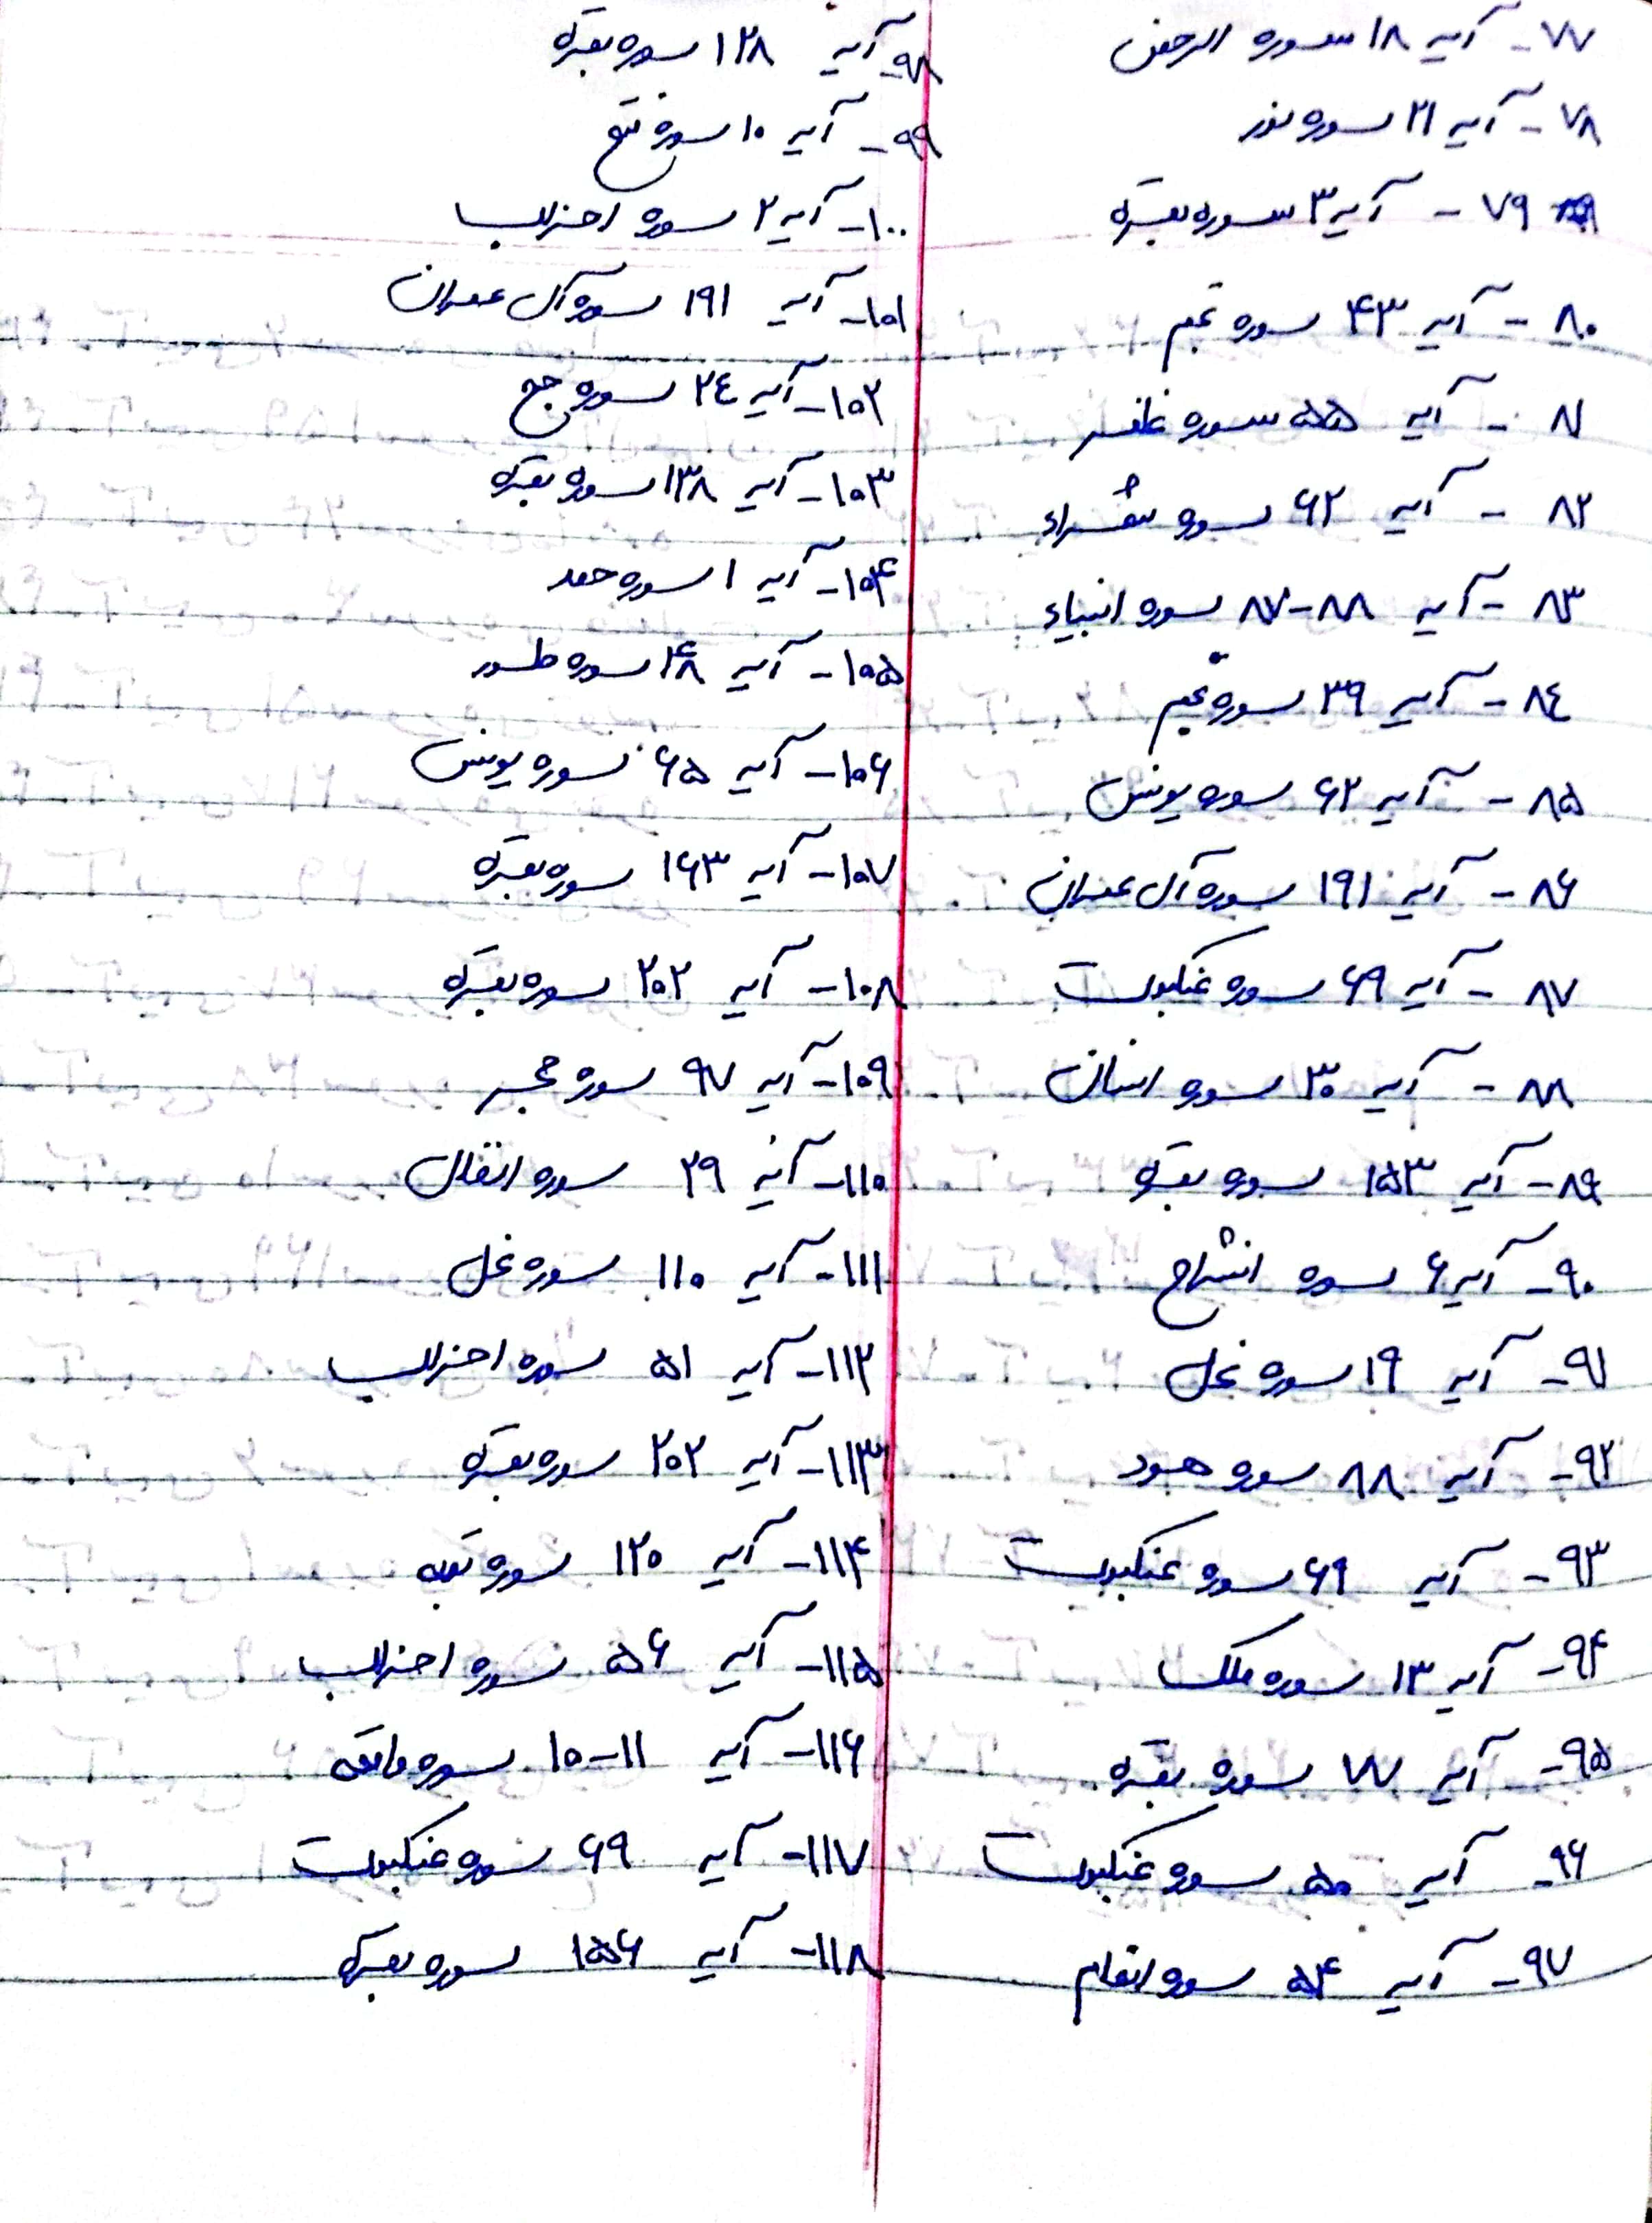 ۷۷- آیه ۱۸ سوره الرحمن
۷۸- آیه ۲۱ سوره نور
۷۹- آیه ۳ سوره بقره
۸۰- آیه ۴۳ سوره نجم
۸۱- آیه ۵۵ سوره غافر
۸۲- آیه ۶۲ سوره شعراء
۸۳- آیه ۸۸-۸۷ سوره انبیاء
۸۴- آیه ۳۹ سوره نجم
۸۵- آیه ۶۲ سوره یونس
۸۶- آیه ۱۹۱ سوره آل عمران
۸۷- آیه ۶۹ سوره عنکبوت
۸۸- آیه ۳۰ سوره انسان
۸۹- آیه ۱۵۳ سوره بقره
۹۰- آیه ۶ سوره انشراح
۹۱- آیه ۱۹ سوره نحل
۹۲- آیه ۸۸ سوره هود
۹۳- آیه ۶۹ سوره عنکبوت
۹۴- آیه ۱۳ سوره ملک
۹۵- آیه ۷۷ سوره بقره
۹۶- آیه ۵۰ سوره عنکبوت
۹۷- آیه ۵۴ سوره انعام
۹۸- آیه ۱۲۸ سوره بقره
۹۹- آیه ۱۰ سوره فتح
۱۰۰- آیه ۲ سوره احزاب
۱۰۱- آیه ۱۹۱ سوره آل عمران
۱۰۲- آیه ۲۴ سوره حج
۱۰۳- آیه ۱۳۸ سوره بقره
۱۰۴- آیه ۱ سوره حمد
۱۰۵- آیه ۴۸ سوره طور
۱۰۶- آیه ۶۵ سوره یونس
۱۰۷- آیه ۱۶۳ سوره بقره
۱۰۸- آیه ۲۰۲ سوره بقره
۱۰۹- آیه ۹۷ سوره حجر
۱۱۰- آیه ۲۹ سوره انفال
۱۱۱- آیه ۱۱۰ سوره نحل
۱۱۲- آیه ۵۱ سوره احزاب
۱۱۳- آیه ۲۰۲ سوره بقره
۱۱۴- آیه ۱۲۰ سوره توبه
۱۱۵- آیه ۵۶ سوره احزاب
۱۱۶- آیه ۱۱-۱۰ سوره واقعه
۱۱۷- آیه ۶۹ سوره عنکبوت
۱۱۸- آیه ۱۵۶ سوره بقره